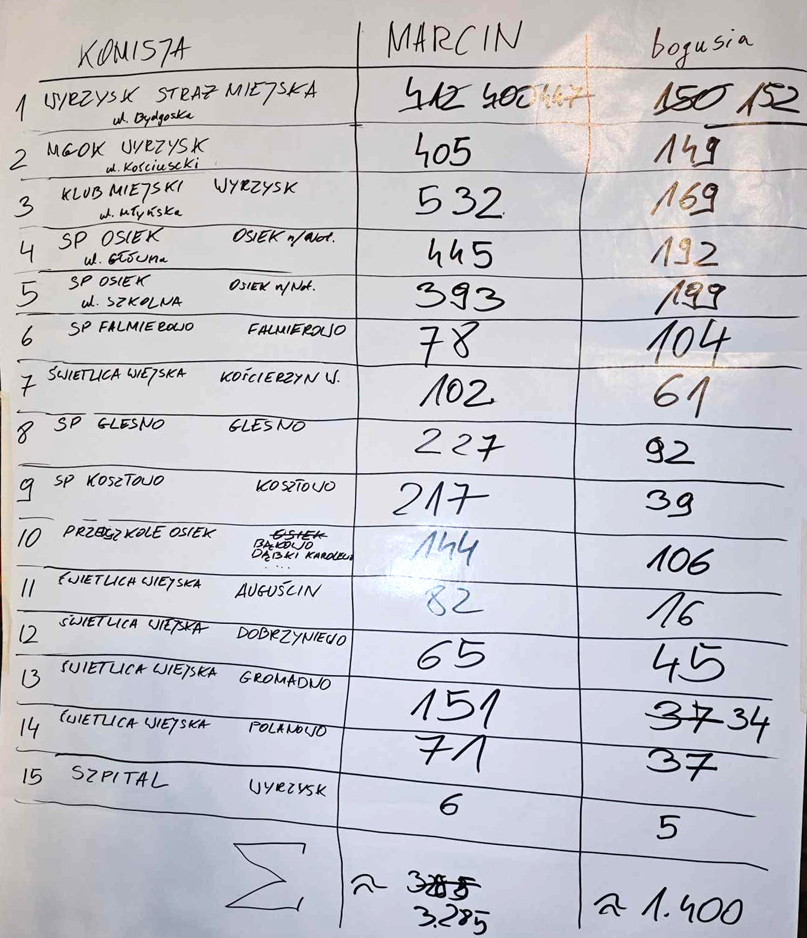 KOMISJA MARCIN bogusia
1 WYRZYSK STRAŻ MIEJSKA 412 400 447 150 152
ul. Bydgoska
2 MGOK WYRZYSK 405 149
ul. Kościuscki
3 KLUB MIEJSKI WYRZYSK 532 169
ul. Młyńska
4 SP OSIEK OSIEK n/Not. 445 192
ul. GŁówna
5 SP OSIEK OSIEK n/Not. 393 199
ul. SZKOLNA
6 SP FALMIEROWO FALMIEROWO 78 104
7 ŚWIETLICA WIEJSKA KOŚCIERZYN W. 102 61
8 SP GLESNO GLESNO 227 92
9 SP KOSZTOWO KOSZTOWO 217 39
10 PRZEDSZKOLE OSIEK OSIEK 144 106
BĄKOWO
DĄBKI KAROLEWO
...
11 ŚWIETLICA WIEJSKA AUGUŚCIN 82 16
12 ŚWIETLICA WIEJSKA DOBRZYNIEWO 65 45
13 ŚWIETLICA WIEJSKA GROMADNO 151 37 34
14 ŚWIETLICA WIEJSKA POLANOWO 71 37
15 SZPITAL WYRZYSK 6 5
Σ ≈ ≈ 1.400
3.285